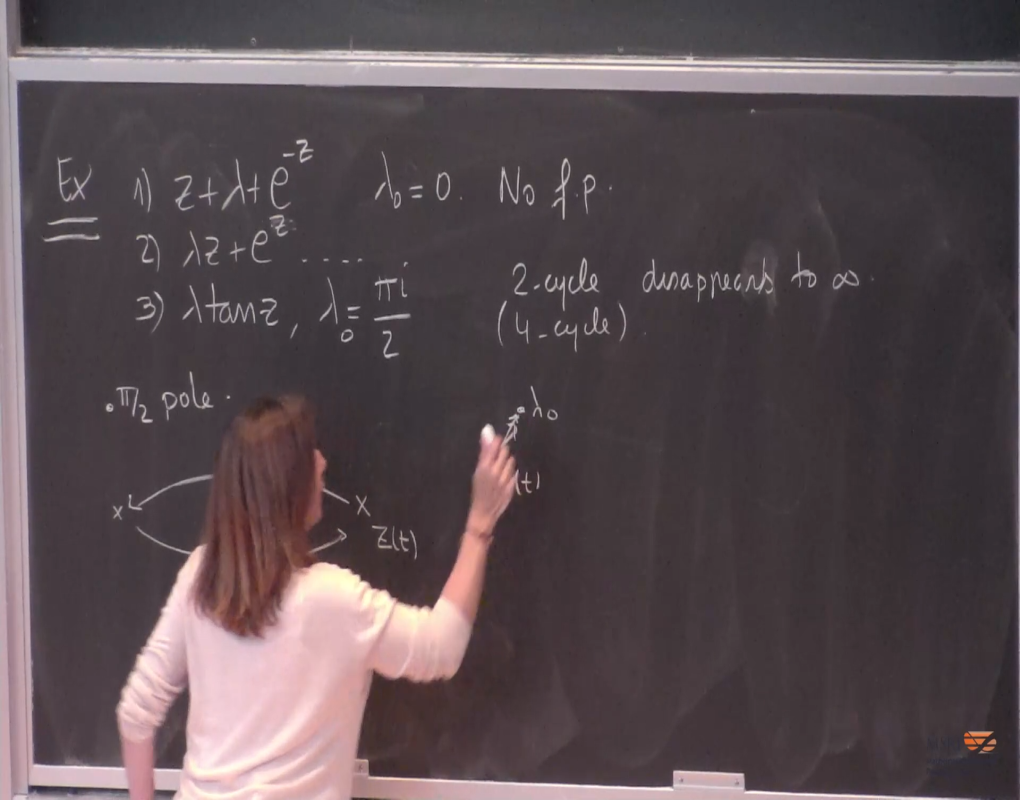 Ex 1) z + λ + e^{-z} λ₀ = 0. No f.p.
2) λz + e^z .....
3) λ tan z, λ₀ = πi/2 2-cycle disappears to ∞.
(4-cycle).
. π/2 pole. λ₀
x x (t)
z(t)